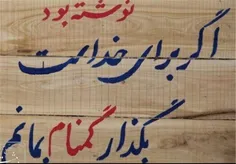 نوشته بود
اگر برای خداست
بگذار گمنام بمانم